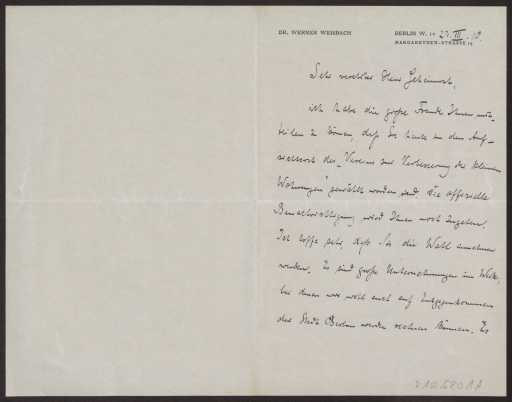 DR. WERNER WEISBACH
BERLIN W. 10 23. III. 12.
MARGARETHEN-STRASSE 19
Sehr verehrter Herr Geheimrat,
ich habe die große Freude Ihnen mit-
teilen zu können, daß Sie heute in den Auf-
sichtsrat des „Vereins zur Verbesserung der kleinen
Wohnungen" gewählt worden sind. Die offizielle
Benachrichtigung wird Ihnen noch zugehen.
Ich hoffe sehr, daß Sie die Wahl annehmen
werden. Es sind große Unternehmungen im Werke,
bei denen wir wohl auch auf Entgegenkommen
der Stadt Berlin werden rechnen können. Es